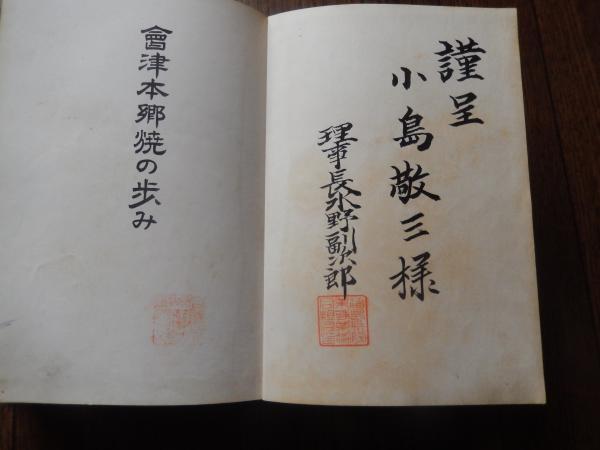 謹呈
小島敬三様
理事長水野副次郎
會津本郷焼の歩み